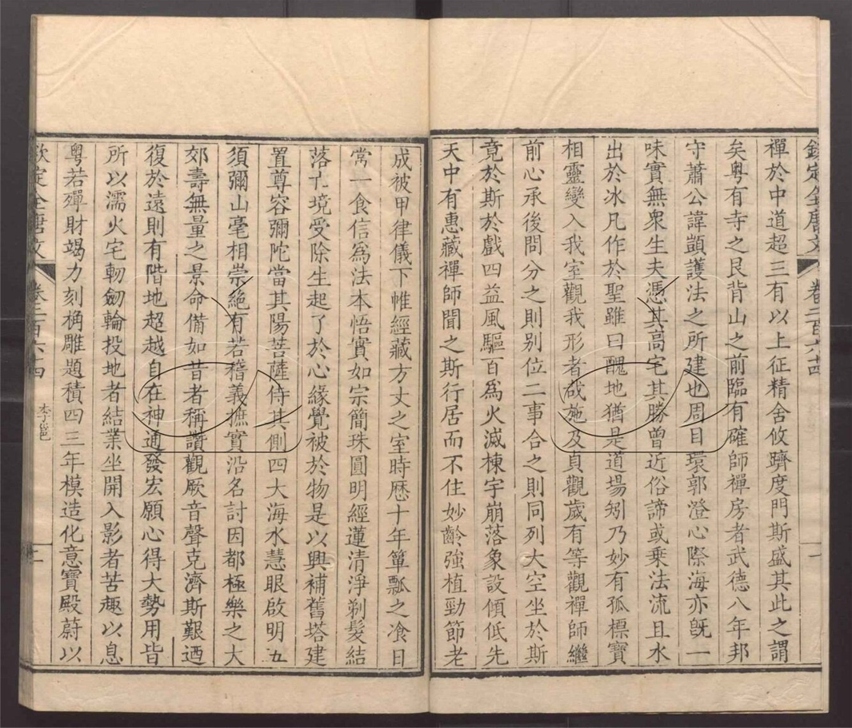 欽定全唐文 卷二百六十四 一
禪於中道超三有以上征精舍攸躋度門斯盛其此之謂
矣粵有寺之艮背山之前臨有確師禪房者武德八年邦
守蕭公諱顗護法之所建也周目環郭澄心際海亦旣一
味實無衆生夫憑其高宅其勝曾近俗諦或乘法流且水
出於冰凡作於聖雖曰醜地猶是道場矧乃妙有孤標寶
相靈變入我室觀我形者咸施及貞觀歲有等觀禪師繼
前心承後問分之則別位二事合之則同列大空坐於斯
竟於斯於戲四益風驅百爲火滅棟宇崩落象設傾低先
天中有惠藏禪師聞之斯行居而不住妙齡強植勁節老
成被甲律儀下帷經藏方丈之室時歷十年簞瓢之飡日
常一食信爲法本悟實如宗簡珠圓明經蓮清淨剃髮結
落十境受除生起了於心緣覺被於物是以興補舊塔建
置尊容彌陀當其陽菩薩侍其側四大海水慧眼啟明五
須彌山毫相崇絕有若稽義摭實沿名討因都極樂之大
郊壽無量之景命備如昔者稱讚觀厥音聲克濟斯艱迺
復於遠則有階地超越自在神通發宏願心得大勢用皆
所以濡火宅軔劒輪投地者結業坐開入影者苦趣以息
粵若殫財竭力刻桷雕題積四三年模造化意寶殿蔚以
欽定全唐文 卷二百六十四 李邕 一